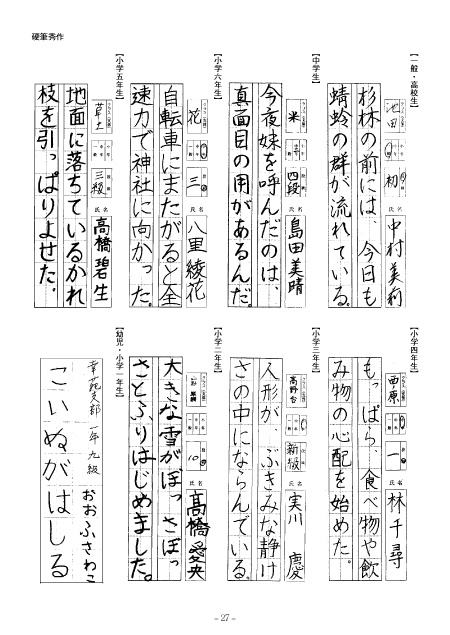 硬筆秀作
【一般・高校生】
池田 初 中村美莉
杉林の前には、今日も
蜻蛉の群が流れている。
【中学生】
米 四段 島田美晴
今夜妹を呼んだのは、
真面目の用があるんだ。
【小学六年生】
花 三 八里綾花
自転車にまたがると全
速力で神社に向かった。
【小学五年生】
草土 三級 高橋碧生
地面に落ちているかれ
枝を引っぱりよせた。
【小学四年生】
西原 一 林千尋
もっぱら、食べ物や飲
み物の心配を始めた。
【小学三年生】
高野台 新級 実川慶
人形が、ぶきみな静け
さの中にならんでいる。
【小学二年生】
10 高橋愛央
大きな雪がぼっさぼっ
さとふりはじめました。
【幼児・小学一年生】
幸苑支部 一年 九級 おおふさわこ
こいぬがはしる
- 27 -